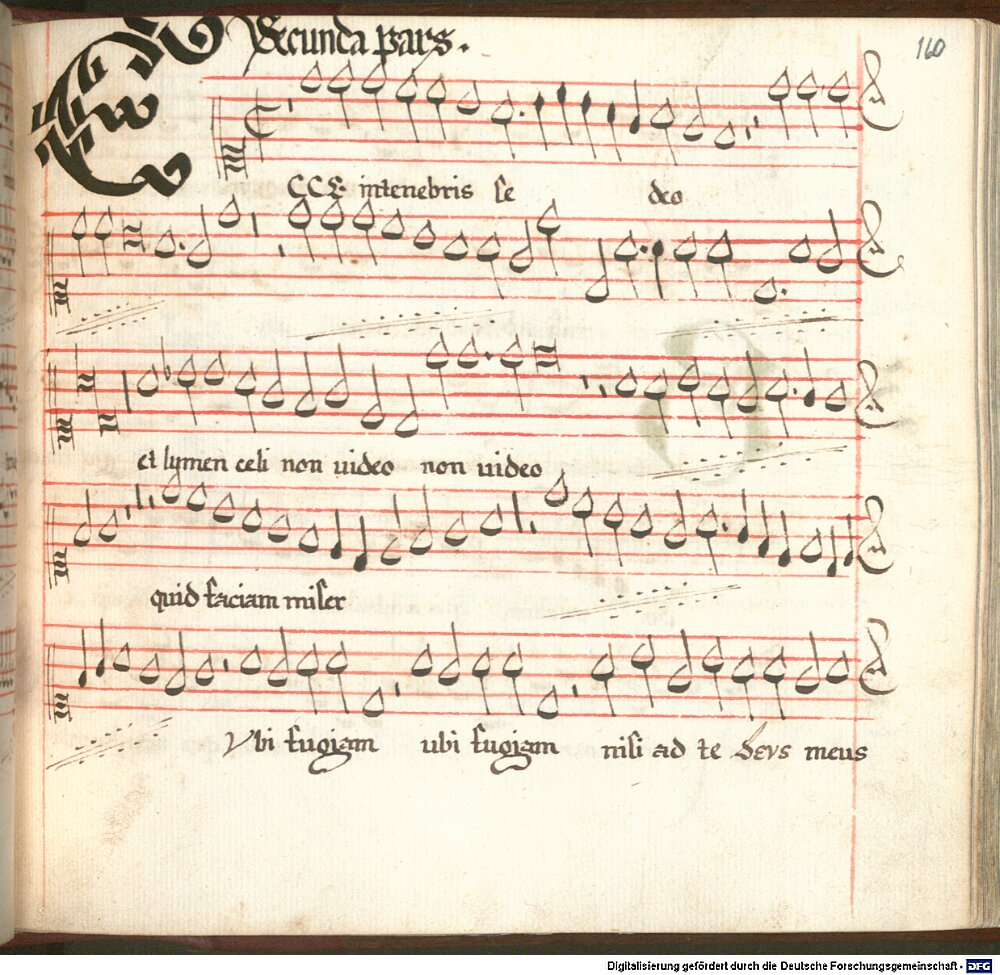 Secunda pars.
160
ECCE in tenebris se deo
et lymen celi non uideo non uideo
quid faciam miser
Vbi fugiam ubi fugiam nisi ad te deus meus
Digitalisierung gefördert durch die Deutsche Forschungsgemeinschaft - DFG